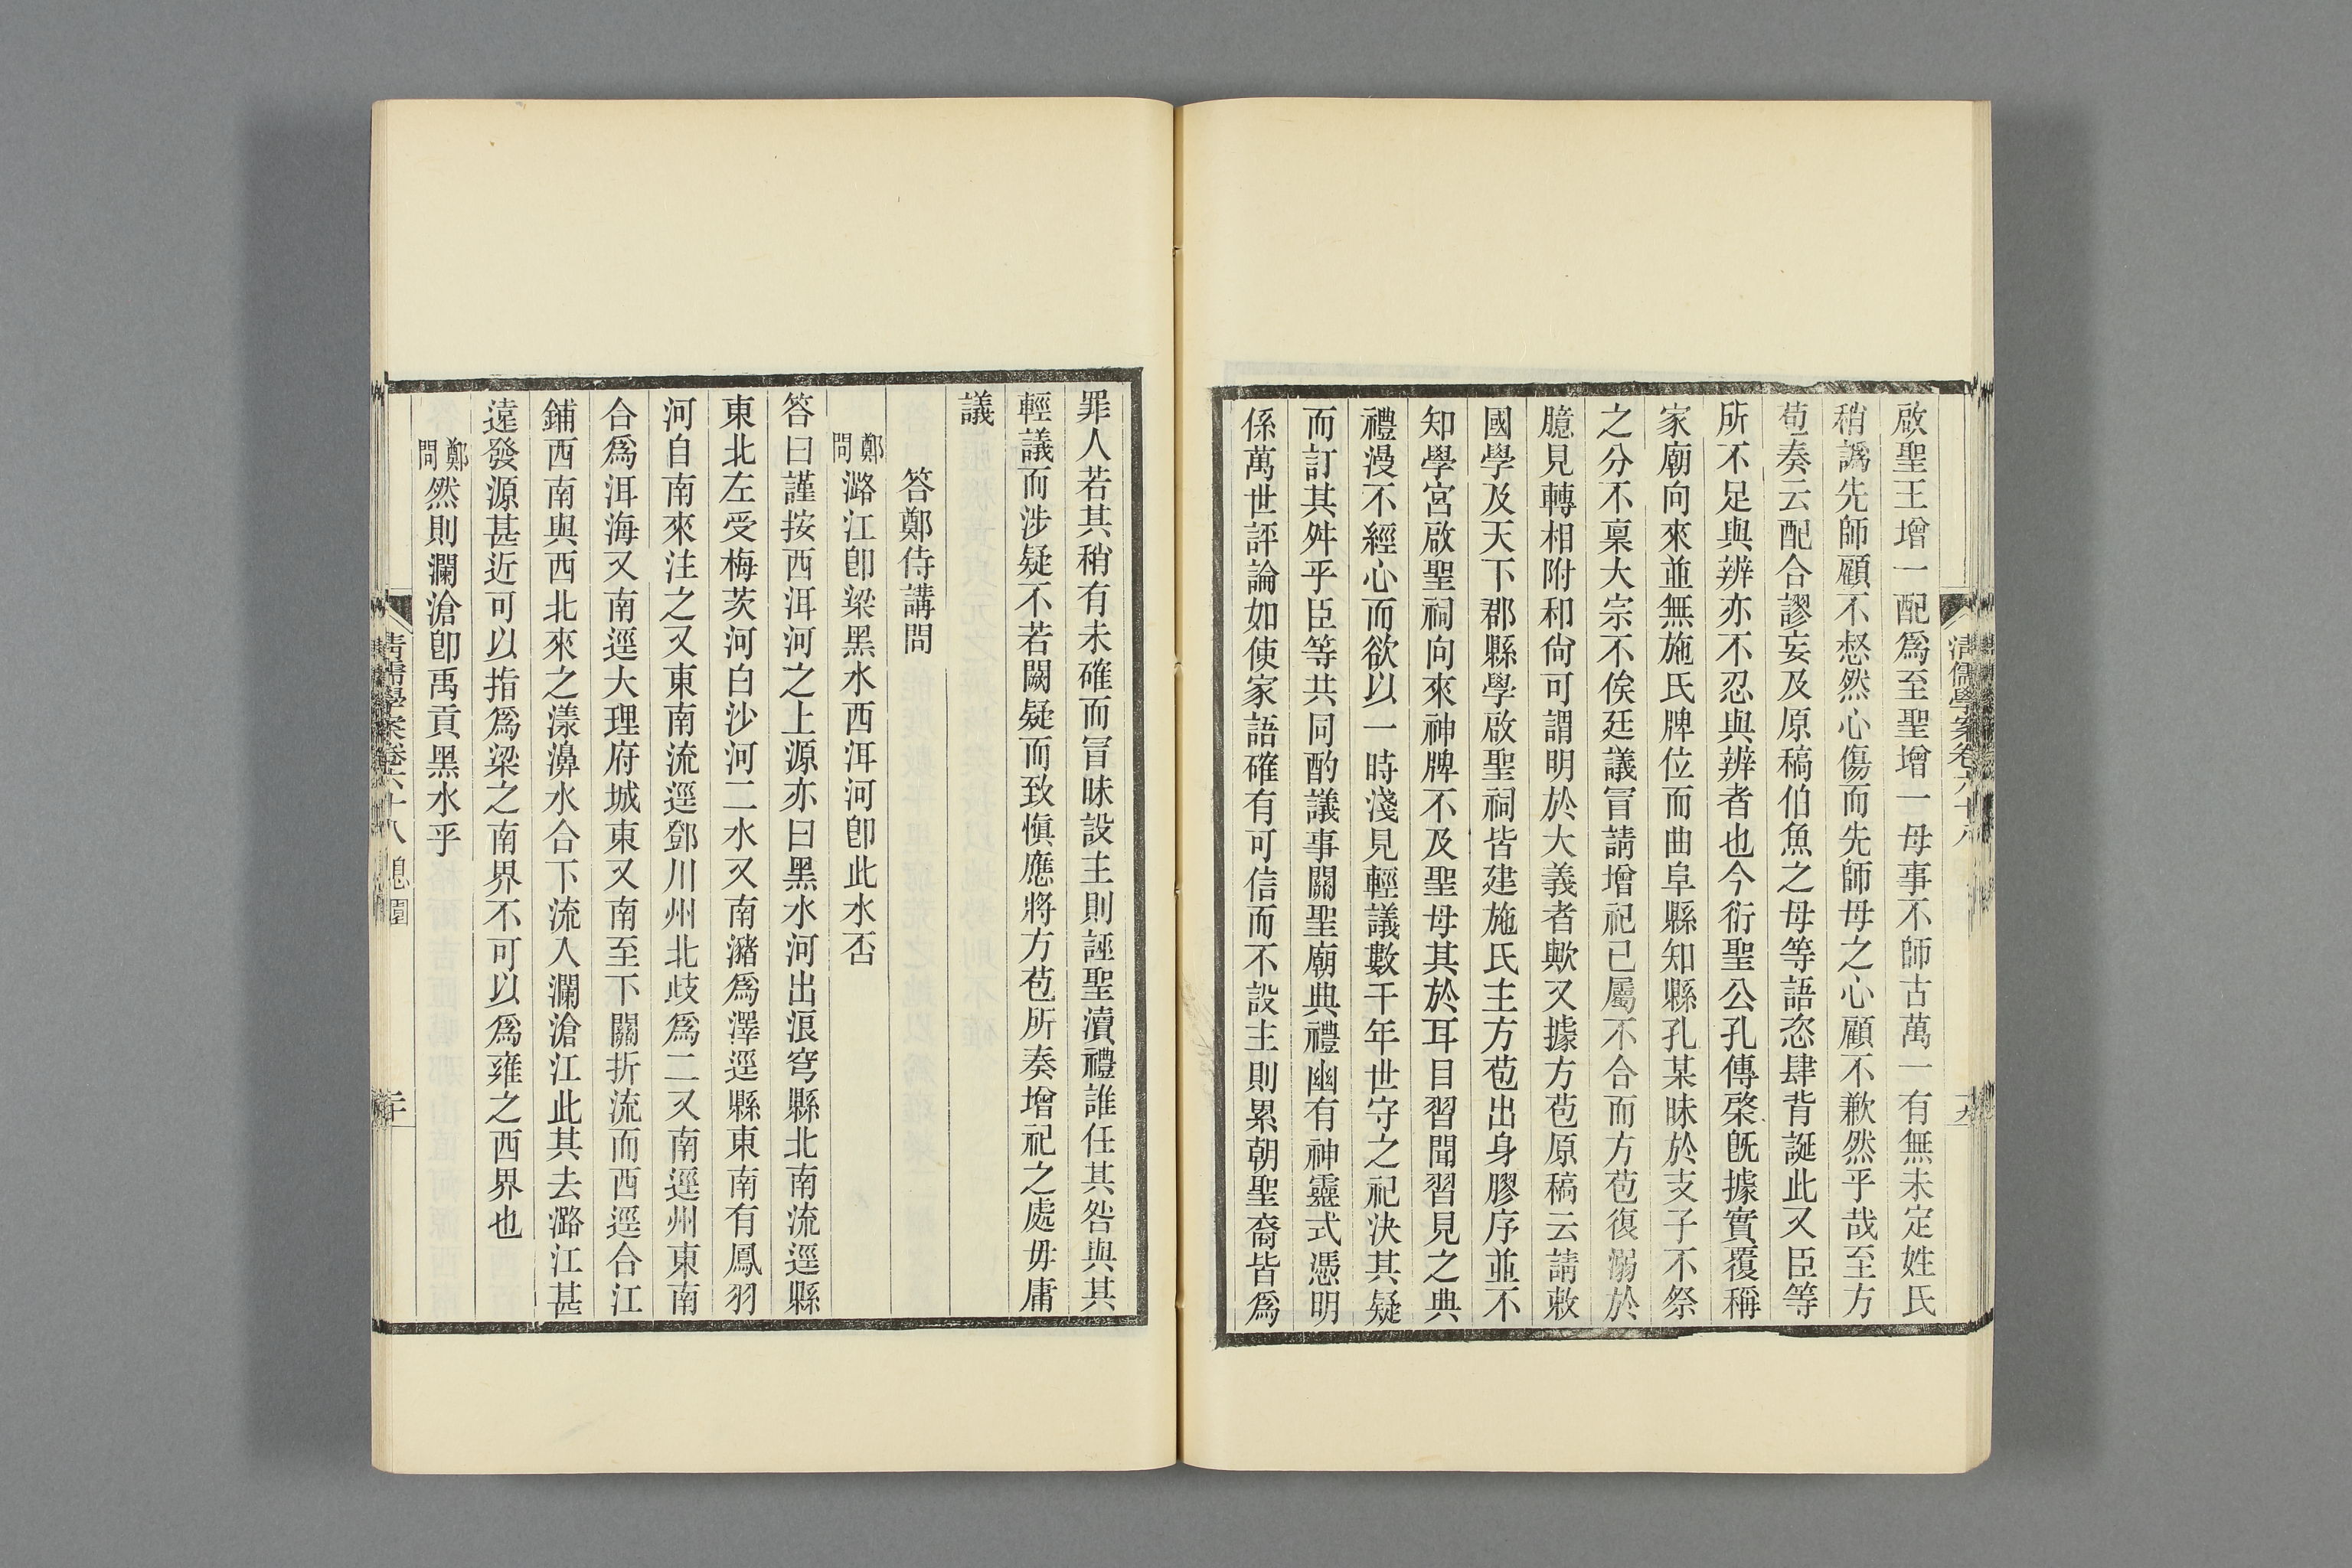 啟聖王增一配爲至聖增一母事不師古萬一有無未定姓氏
稍譌先師顧不惄然心傷而先師母之心顧不歉然乎哉至方
苞奏云配合謬妄及原稿伯魚之母等語恣肆背誕此又臣等
所不足與辨亦不忍與辨者也今衍聖公孔傳棨旣據實覆稱
家廟向來並無施氏牌位而曲阜縣知縣孔某昧於支子不祭
之分不稟大宗不俟廷議冒請增祀已屬不合而方苞復溺於
臆見轉相附和尙可謂明於大義者歟又據方苞原稿云請敕
國學及天下郡縣學啟聖祠皆建施氏主方苞出身膠序並不
知學宮啟聖祠向來神牌不及聖母其於耳目習聞習見之典
禮漫不經心而欲以一時淺見輕議數千年世守之祀決其疑
而訂其舛乎臣等共同酌議事關聖廟典禮幽有神靈式憑明
係萬世評論如使家語確有可信而不設主則累朝聖裔皆爲
清儒學案卷六十八
十九
罪人若其稍有未確而冒昧設主則誣聖瀆禮誰任其咎與其
輕議而涉疑不若闕疑而致愼應將方苞所奏增祀之處毋庸
議
答鄭侍講問
鄭問潞江卽梁黑水西洱河卽此水否
答曰謹按西洱河之上源亦曰黑水河出浪穹縣北南流逕縣
東北左受梅茨河白沙河二水又南瀦爲澤逕縣東南有鳳羽
河自南來注之又東南流逕鄧川州北歧爲二又南逕州東南
合爲洱海又南逕大理府城東又南至下關折流而西逕合江
鋪西南與西北來之漾濞水合下流入瀾滄江此其去潞江甚
遠發源甚近可以指爲梁之南界不可以爲雍之西界也
鄭問然則瀾滄卽禹貢黑水乎
清儒學案卷六十八 息園
二十